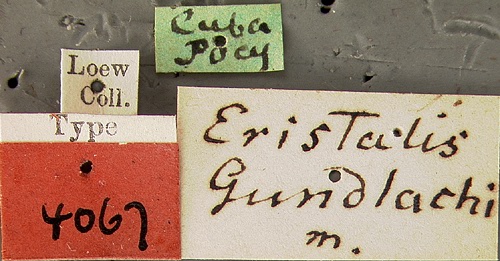 Cuba
Pocy
Loew
Coll.
Type
4067
Eristalis
Gundlachi
m.